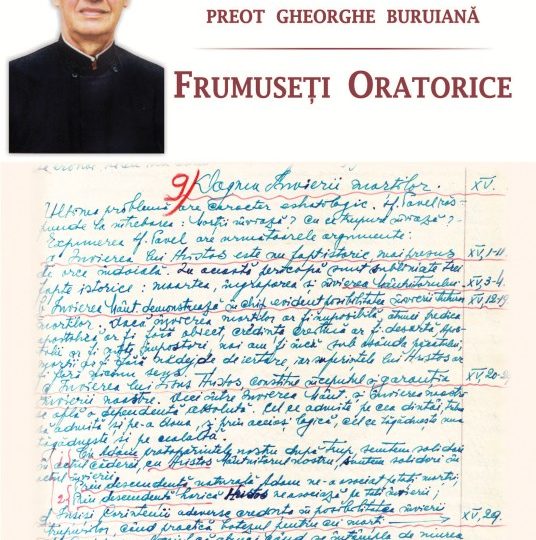 PREOT GHEORGHE BURUIANĂ
FRUMUSEȚI ORATORICE
9) Dogma Învierii morților. XV.
Ultima problemă are caracter eshatologic. Sf. Pavel răs-
punde la întrebarea: Morții înviază? Cu ce trup înviază?
Expunerea Sf. Pavel are următoarele argumente:
Învierea lui Hristos este un fapt istoric, mai presus XV,1-11
de orice îndoială. În această pericopă sunt subliniate trei
fapte istorice: moartea, îngroparea și învierea Mântuitorului. XV,3-4.
Învierea Mânt. demonstrează în chip evident posibilitatea învierii tuturor XV,12-19
morților. Dacă învierea morților ar fi imposibilă, atunci predica
apostolică ar fi fără obiect, credința creștină ar fi deșartă, Apo-
stolii ar fi niște impostori, noi am fi încă sub osânda păcatului,
morții ar fi fără nădejde de deșteptare, iar suferințele lui Hristos ar
fi fără niciun sens.
Învierea lui Iisus Hristos constitue începutul și garanția XV,20-2
învierii noastre. Deci între Învierea Mânt. și Învierea noastră
se află o dependență absolută. Cel ce admite pe cea dintâi, trebue
să admită și pe-a doua, și prin aceiași logică, cel ce tăgăduește una
tăgăduește și pe cealaltă.
Cu Adam protopărintele nostru după trup, suntem solidari
în actul căderii, cu Hristos Mântuitorul nostru, suntem solidari în
actul învierii.
1) Prin descendență naturală, Adam ne-a asociat pe toți morții;
2) Prin descendență harică Hristos ne asociază pe toți învierii;
Însiși Corintenii adeveresc credința în posibilitatea învierii
trupurilor, când practică botezul pentru cei morți XV,29.